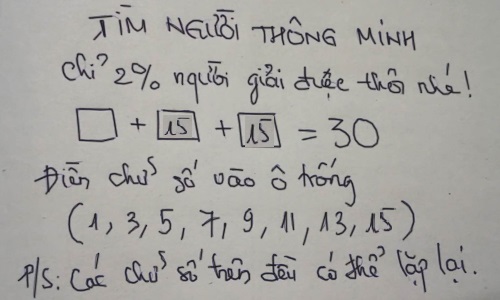 TÌM NGƯỜI THÔNG MINH
Chỉ 2% người giải được thôi nhé!
□ + 15 + 15 = 30
Điền chữ số vào ô trống
(1, 3, 5, 7, 9, 11, 13, 15)
P/S: Các chữ số trên đều có thể lặp lại.